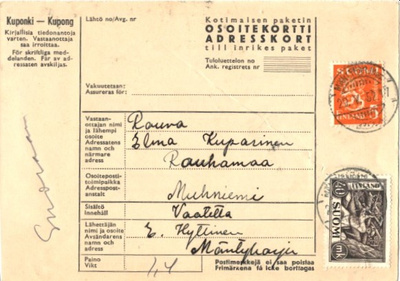 Kuponki — Kupong
Kirjallisia tiedonantoja
varten. Vastaanottaja
saa irroittaa.
För skriftliga med-
delanden. Får av ad-
ressaten avskiljas.
Lähtö no/Avg. nr
Kotimaisen paketin
OSOITEKORTTI
ADRESSKORT
till inrikes paket
Tuloluettelon no
Ank. registrets nr
Vakuutetaan:
Assureras för:
Vastaan-
ottajan nimi
ja lähempi
osoite
Adressatens
namn och
närmare
adress
Rouva
Elma Kuparinen
Rauhamaa
Osoiteposti-
toimipaikka
Adresspost-
anstalt
Muhniemi
Sisältö
Innehåll
Vaatteita
Lähettäjän
nimi ja osoite
Avsändarens
namn och
adress
E. Hyttinen
Mäntyharju
Paino
Vikt
1,4
Postimerkkejä ei saa poistaa
Frimärkena få icke borttagas
SUOMI
FINLAND